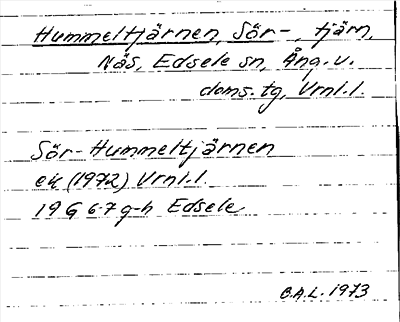 Hummeltjärnen, Sör-, tjärn,
Näs, Edsele sn, Ång. v.
doms. tg, Vrnl. l.
Sör-Hummeltjärnen
ek (1972) Vrnl. l.
19 G 6-7 g-h Edsele
B.A.L. 1973